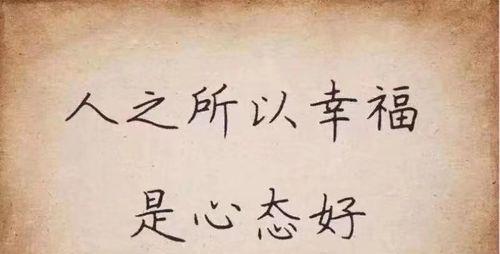 人之所以幸福
是心态好